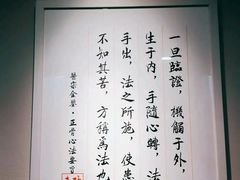 一旦臨證，機觸于外，
生于内，手隨心轉，法
手出，法之所施，使患
不知其苦，方稱爲法也
醫宗金鑒·正骨心法要旨